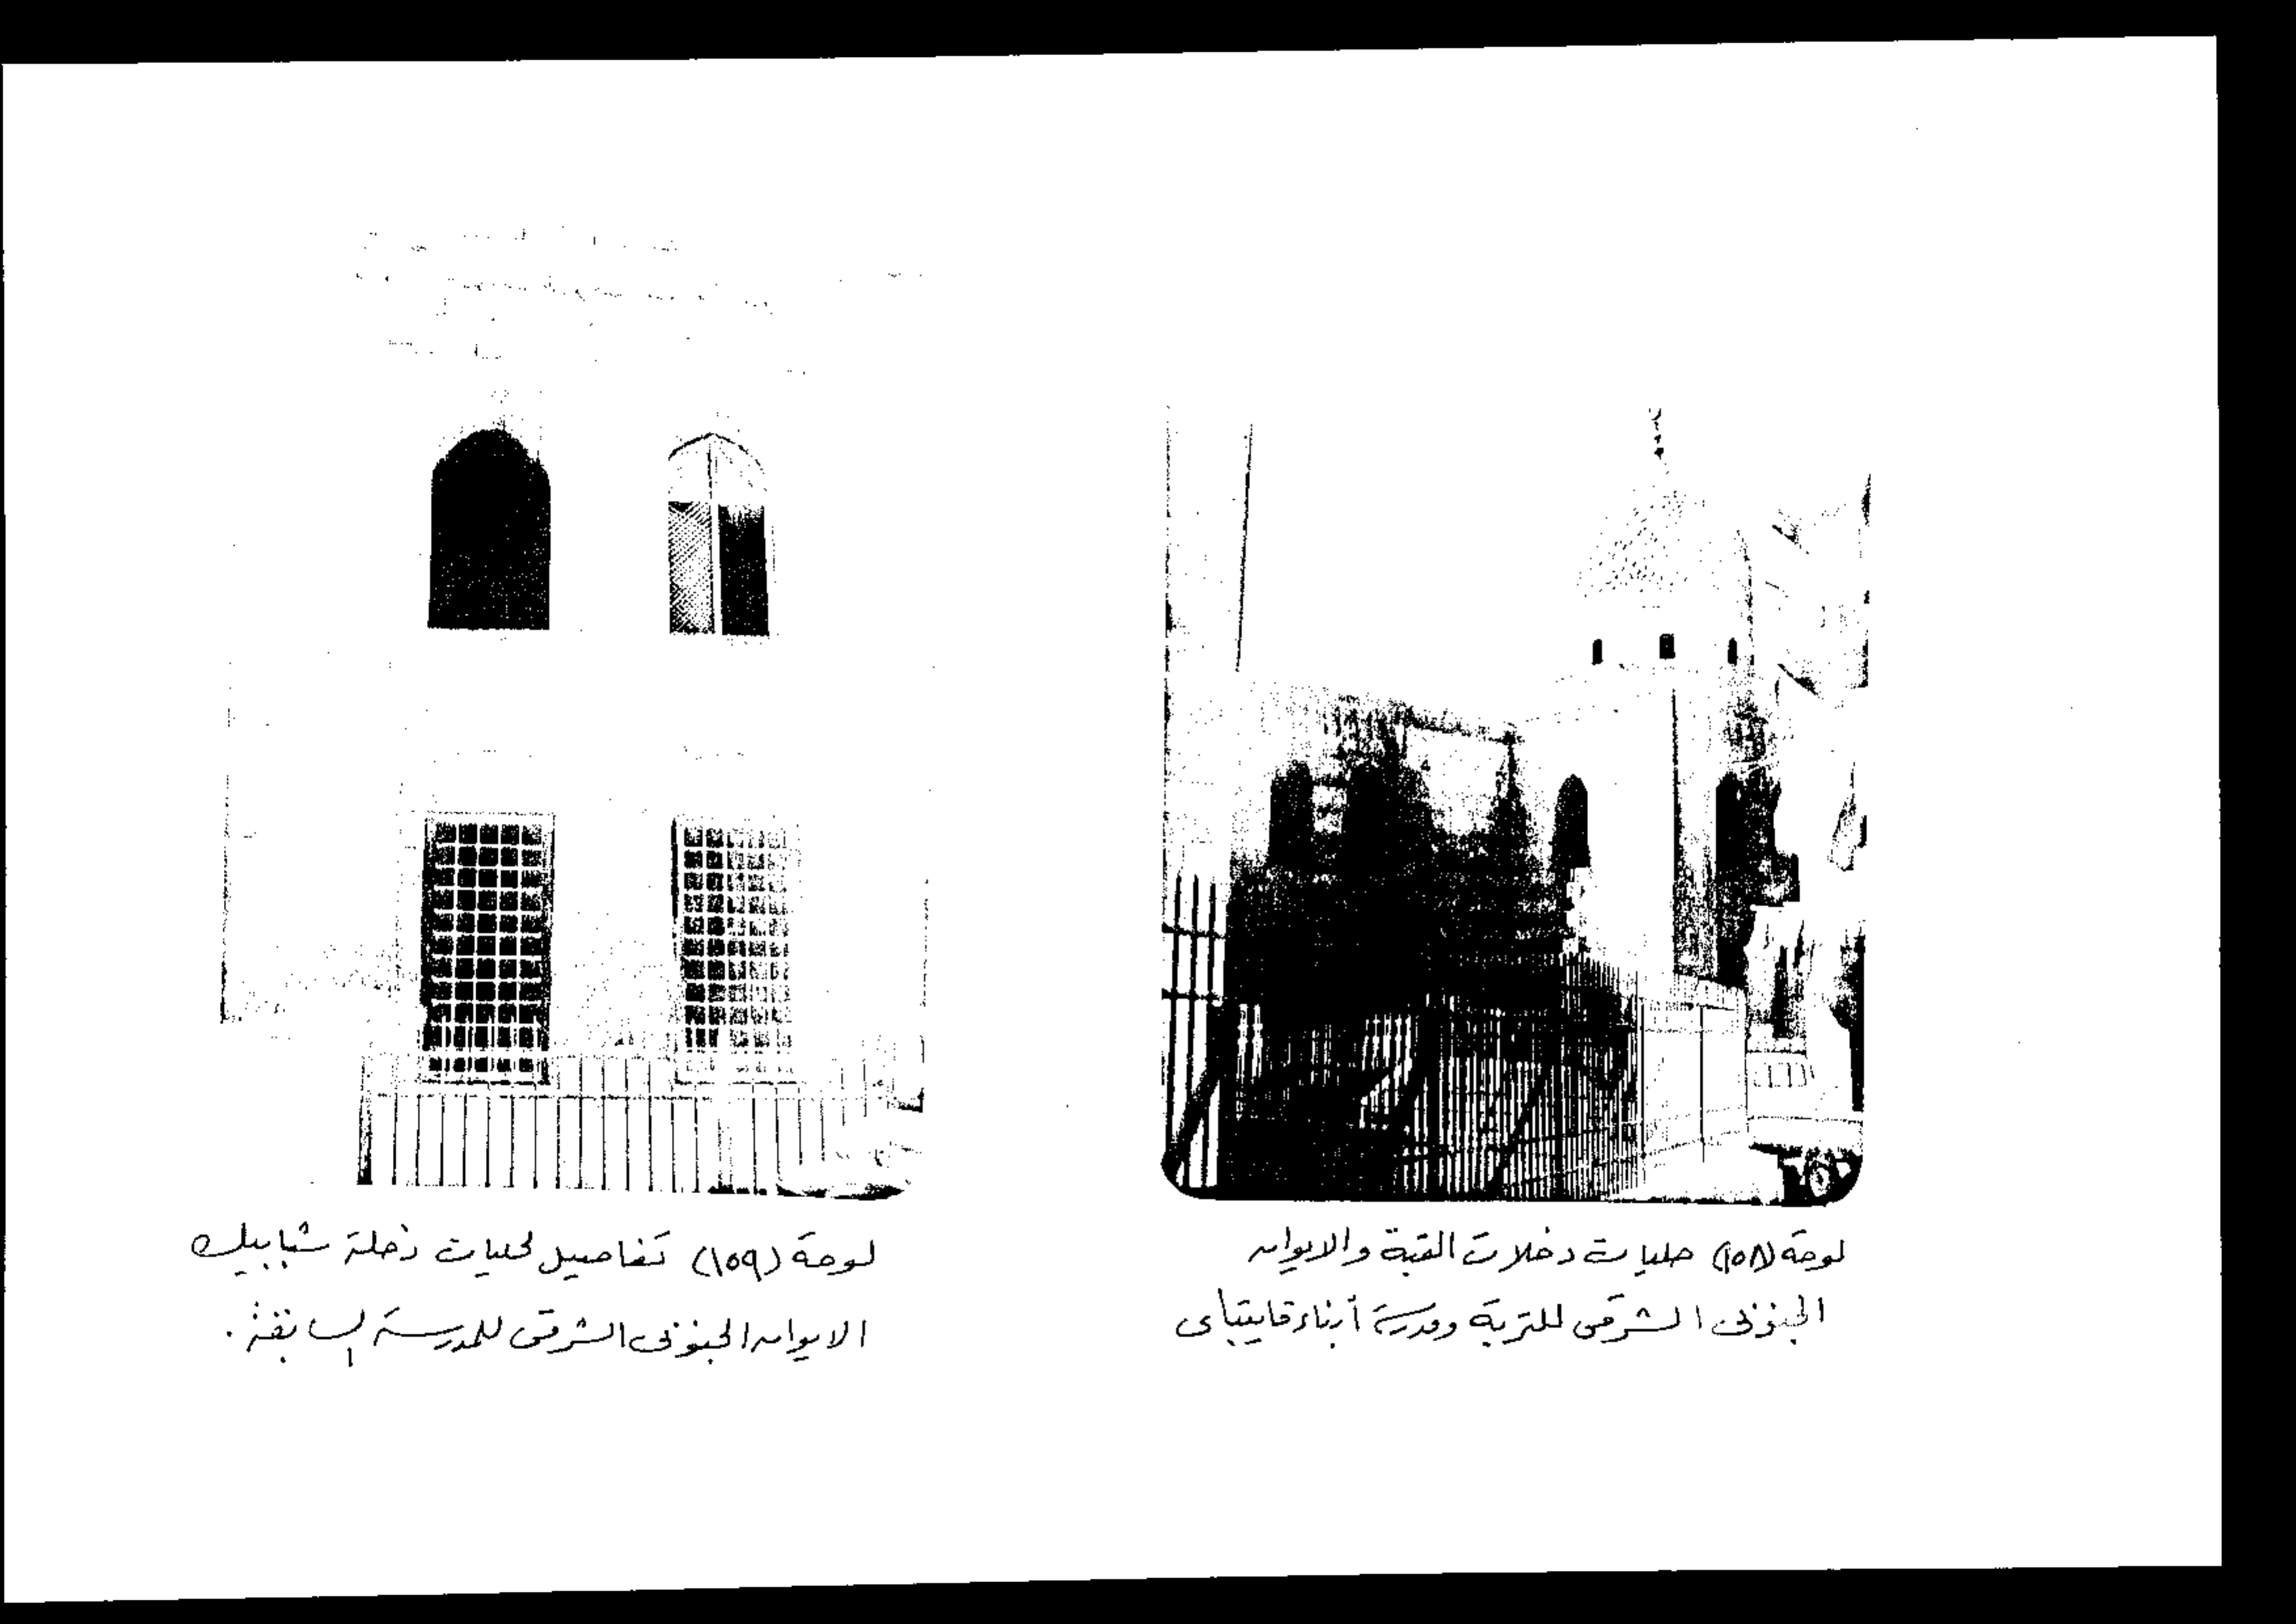 لوحة (١٥٨) حليات دخلات القبة والايوان
الجنوبى الشرقى للتربة ومدرسة أبناء قايتباى
لوحة (١٥٩) تفاصيل لحليات دخلة شبابيك
الايوان الجنوبى الشرقى للمدرسة السابقة .